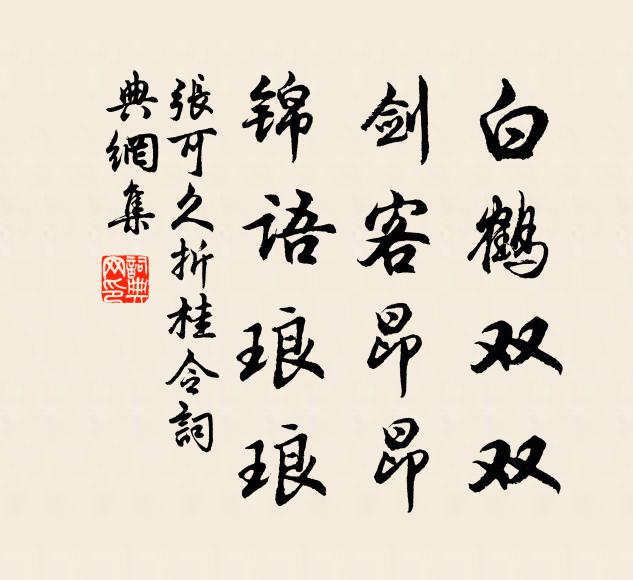 白鹤双双
剑客昂昂
锦语琅琅
張可久折桂令詞
典網集
詞典網印